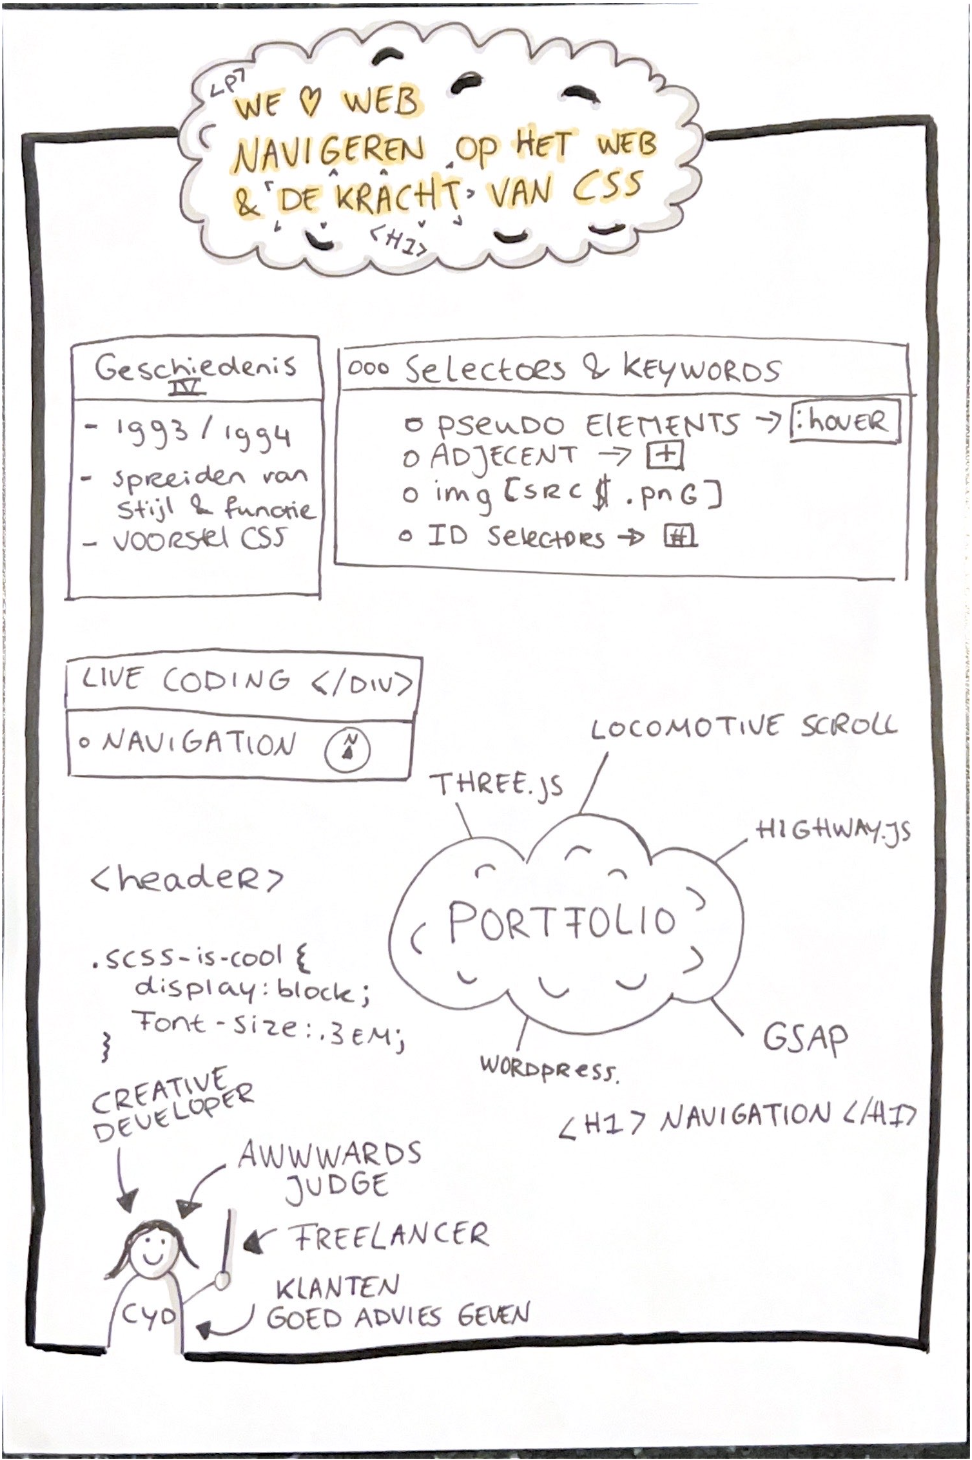 <P>
WE ♡ WEB
NAVIGEREN OP HET WEB
& DE KRACHT VAN CSS
<H1>
Geschiedenis
IV
- 1993 / 1994
- spreiden van
stijl & functie
- VOORstel CSS
ooo Selectors & KEYWORDS
o PSEUDO ElEMENTS → :hoVER
o ADJECENT → +
o img [SRC $ .pnG]
o ID Selectors → #
LIVE CODING </DIV>
o NAVIGATION N
LOCOMOTIVE SCROLL
THREE.JS
HIGHWAY.JS
PORTFOLIO
GSAP
WORDPRESS.
<headeR>
.scss-is-cool {
display: block;
Font-size: .3 EM;
}
<H1> NAVIGATION </H1>
CREATIVE
DEVELOPER
AWWWARDS
JUDGE
FREELANCER
KLANTEN
GOED ADVIES GEVEN
CYD